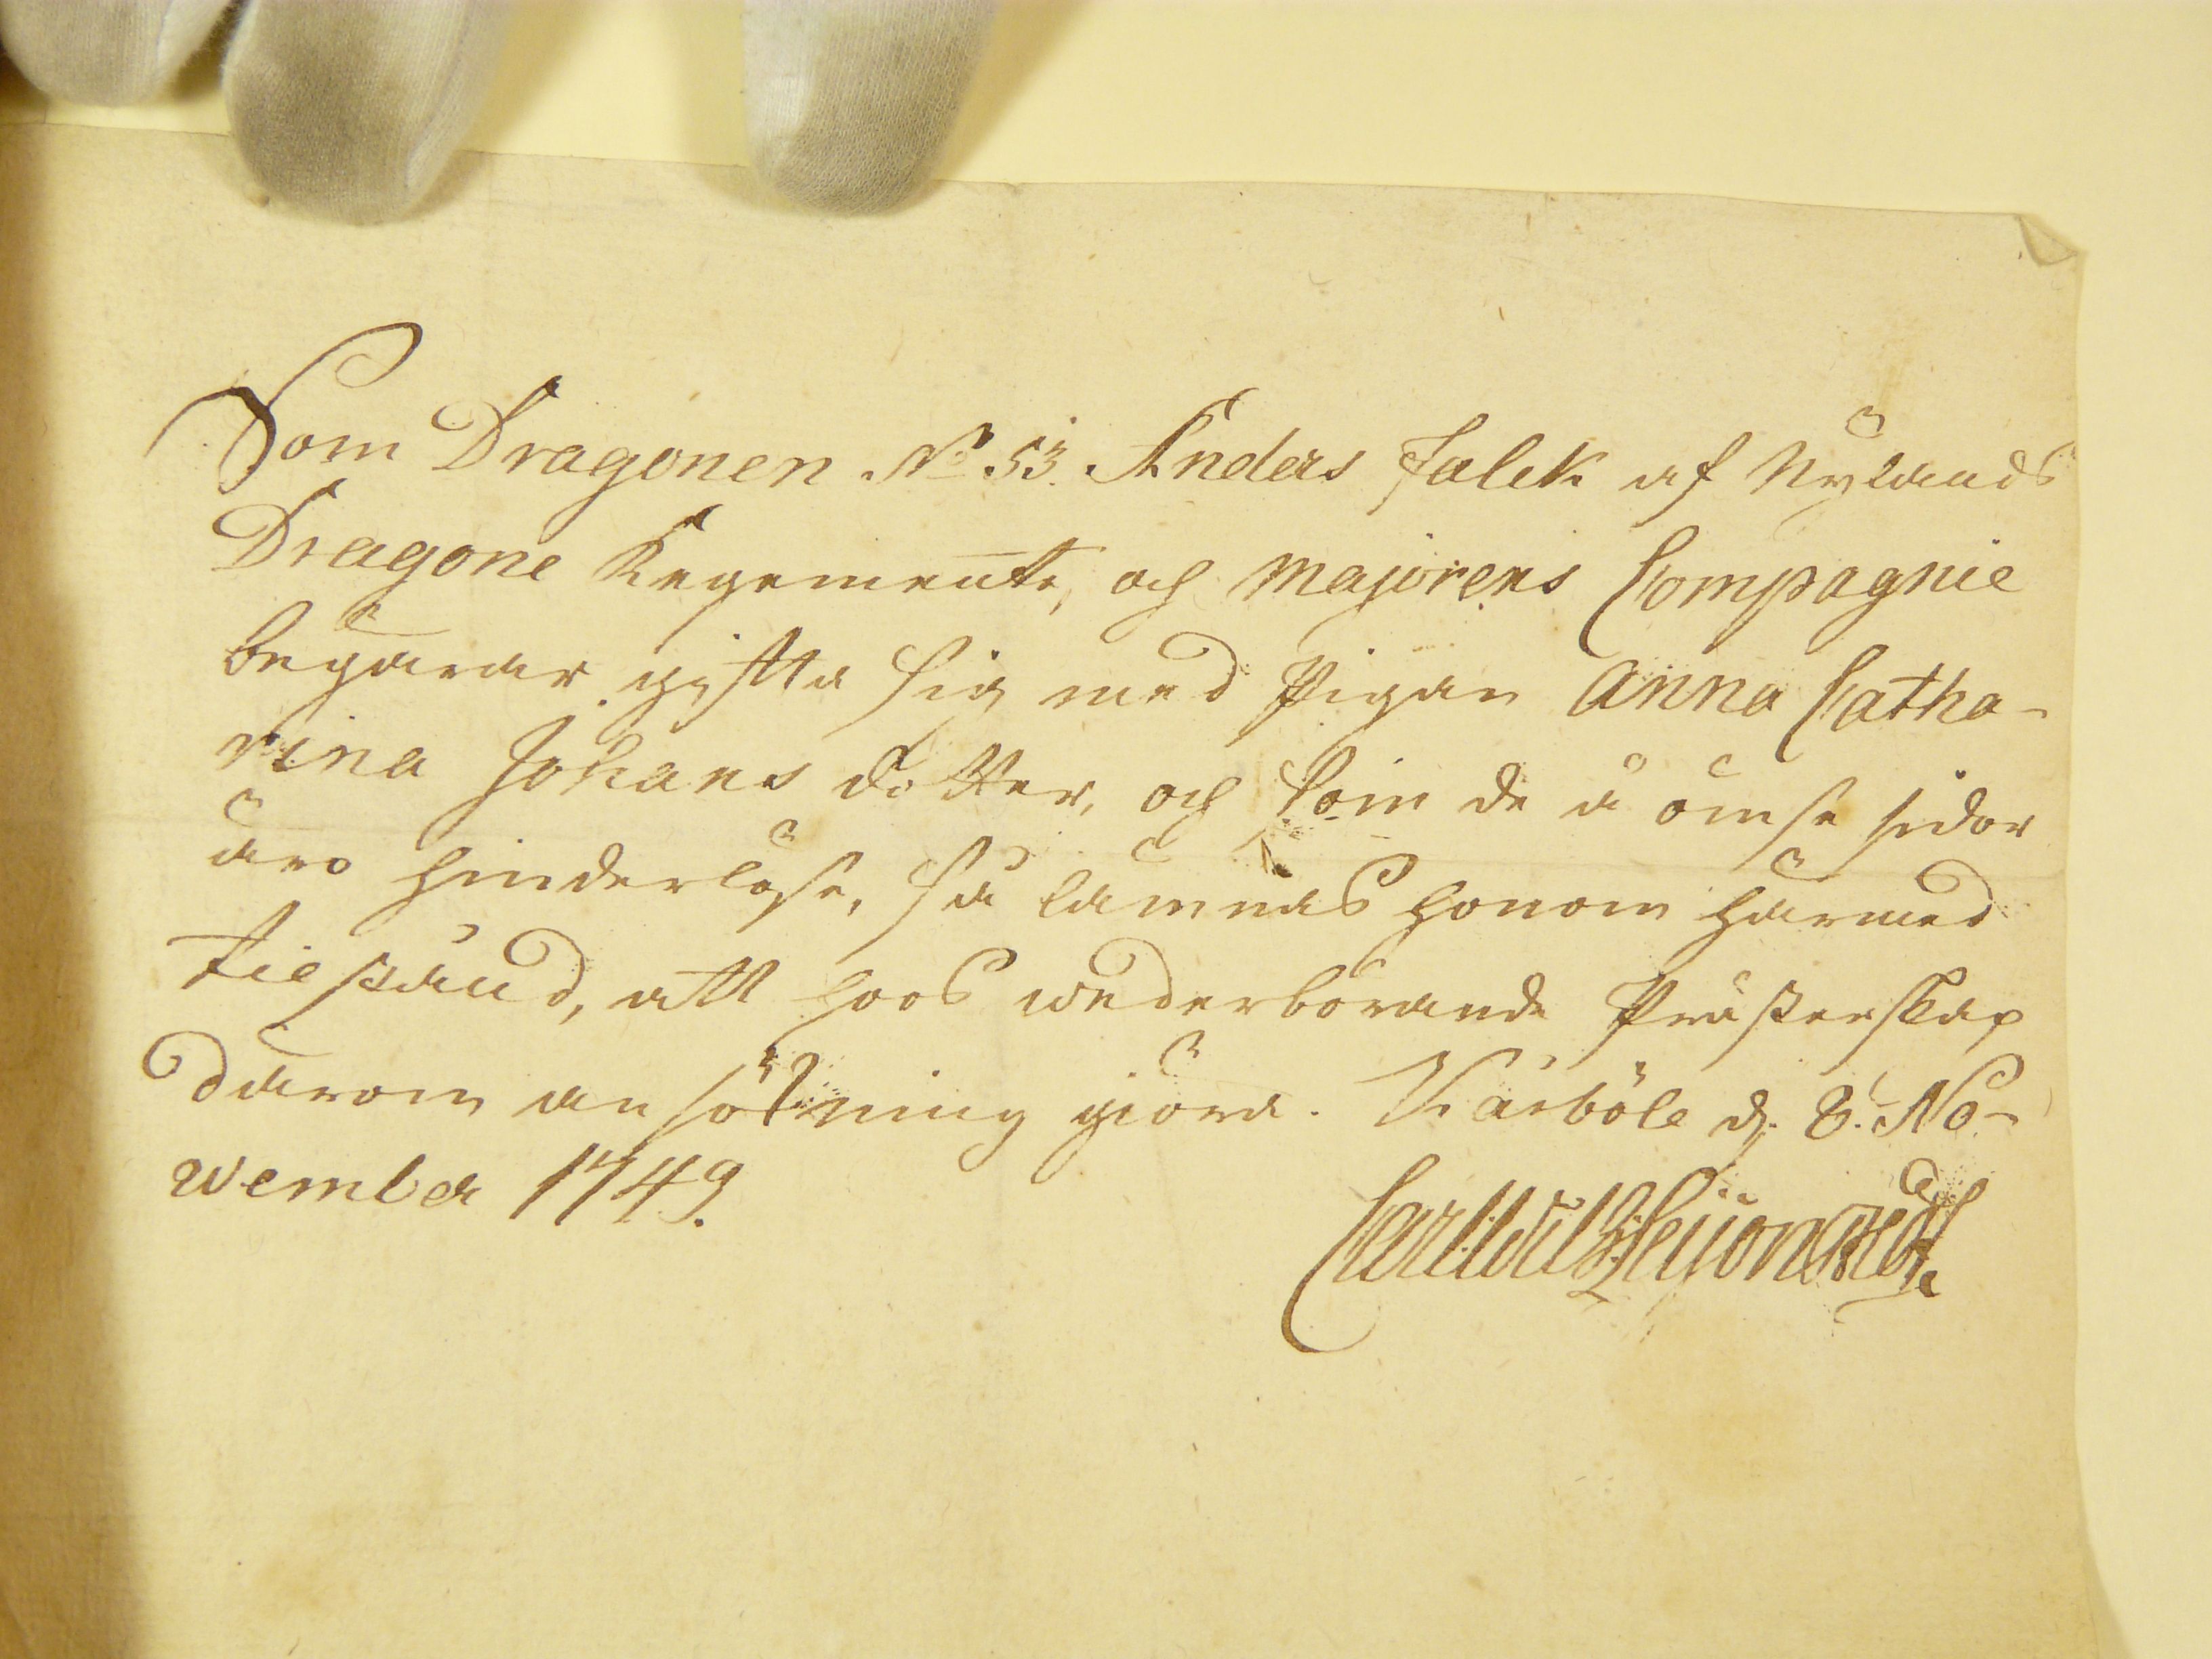 Som Dragonen No 53. Anders Falck af Nylands
Dragone Regemente, och Majorens Compagnie
begärar gifta sig med Pigan Anna Catha-
rina Johans dotter, och som de å ömse sidor
äro hinderlöse, så lämnas honom härmed
tilstånd, att hoos wederbörande Prästerskap
därom ansökning giöra. Kårböle d. 8. No-
wember 1749.
Carl Wil